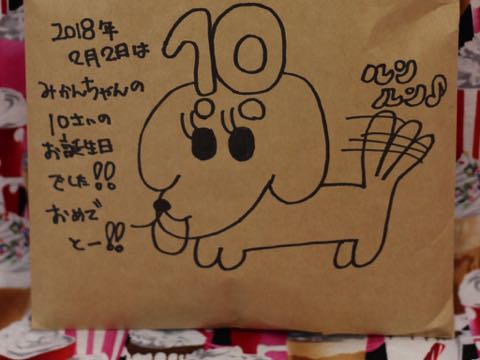 2018年
2月2日は
みかんちゃんの
10さいの
お誕生日
でした!!
おめで
とー!!
10
ルン
ルン♪